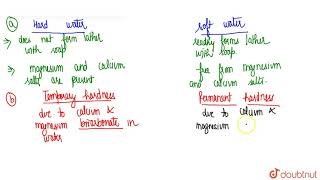 (a) Hard water
Soft water
→ does not form lather
with soap.
readily forms lather
with soap.
→ magnesium and calcium
salts are present
free from magnesium
and calcium salts.
(b) Temporary hardness
Permanent hardness
due to calcium &
magnesium bicarbonate in
water
due to calcium &
magnesium
doubtnut